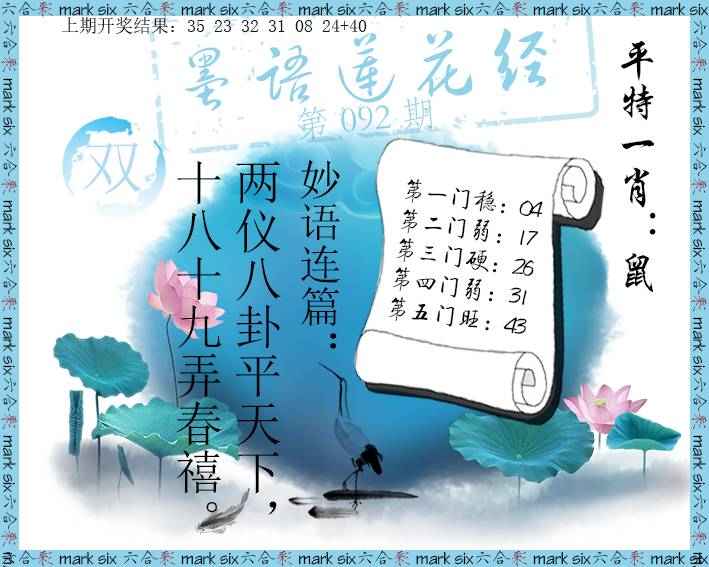 上期开奖结果：35 23 32 31 08 24+40
墨语莲花经
第 092 期
双
平特一肖：鼠
妙语连篇：
两仪八卦平天下，
十八十九弄春禧。
第一门稳：04
第二门弱：17
第三门硬：26
第四门弱：31
第五门旺：43
mark six 六合彩 mark six 六合彩 mark six 六合彩 mark six 六合彩 mark six